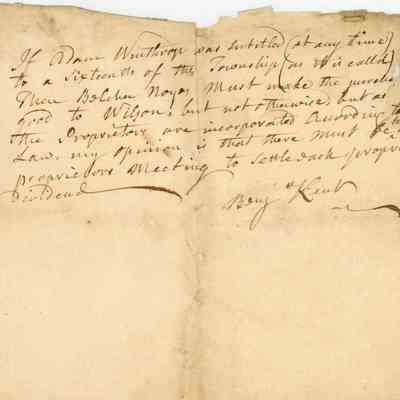 If Adam Winthrop was intitled (at any time)
to a Sixteenth of the Township (as it is called)
Then Belcher Noyes Must make the purchase
good to Wilson, but not otherwise, but as
the Proprietors are incorporated According to
Law. my opinion is that there Must be
proprietors Meeting to Settle each
Dividend
Benj Kent